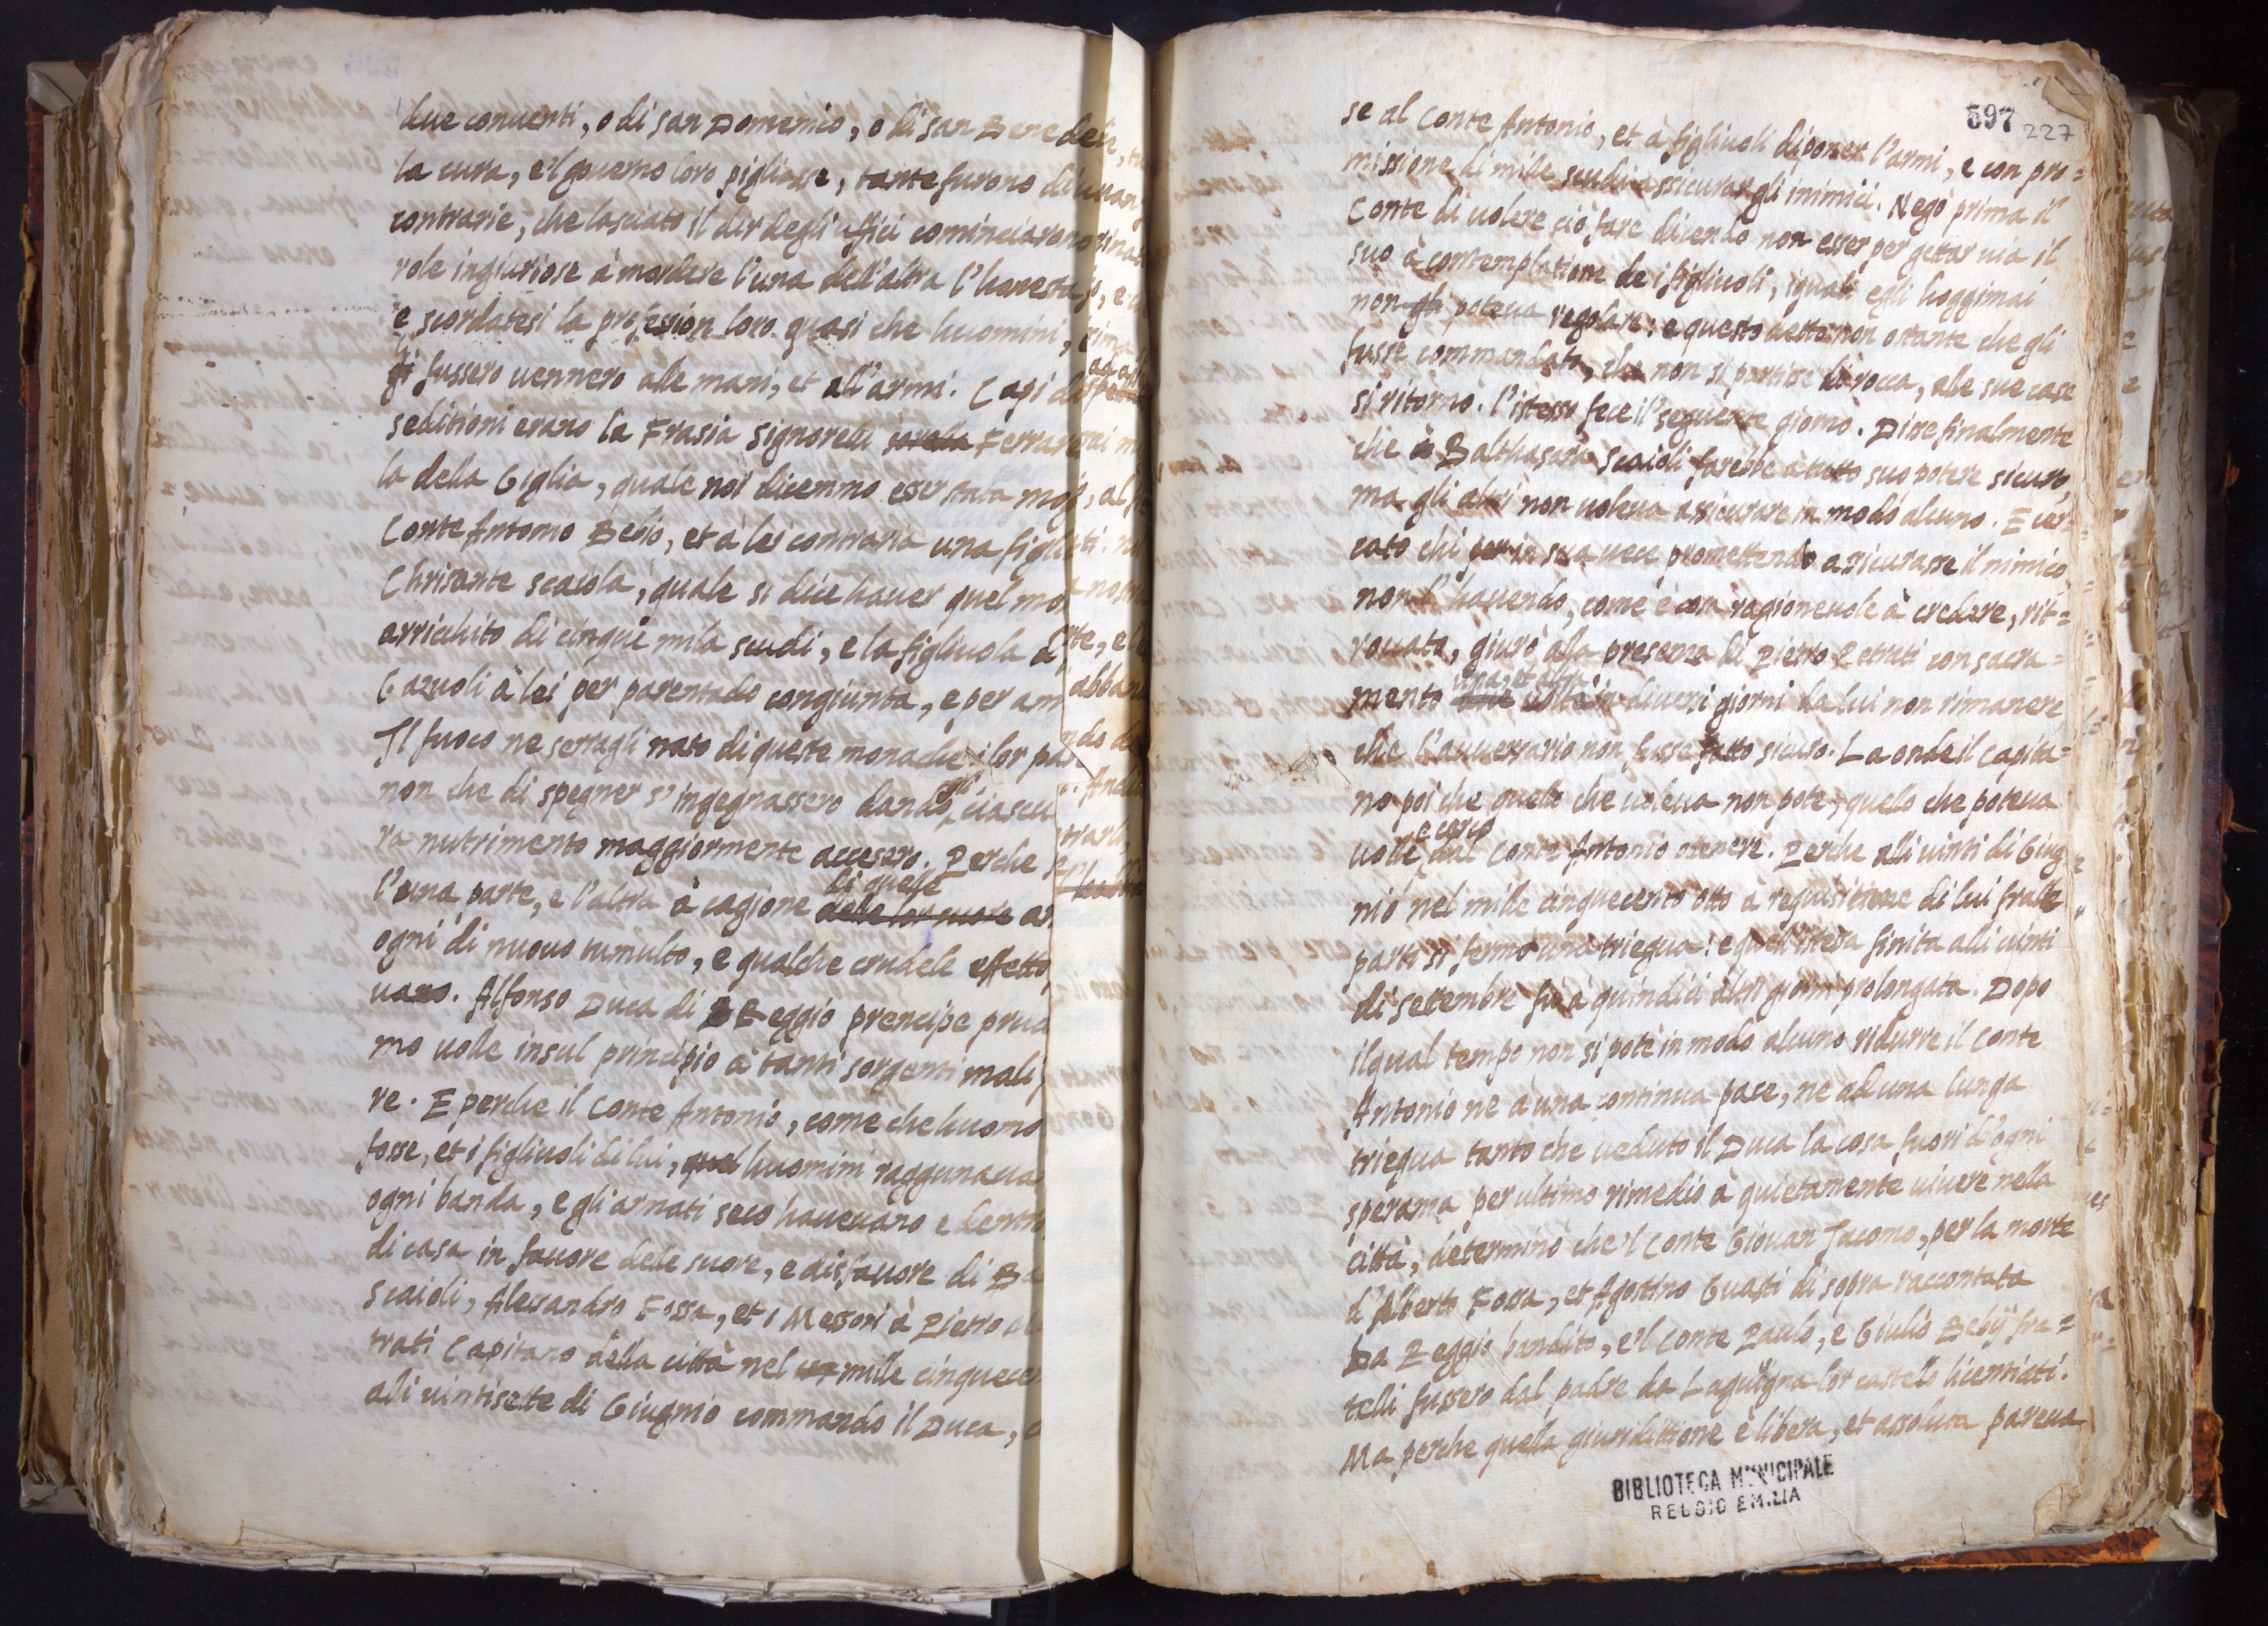 due conuenti, o di san Domenico, o di san Benede
la cura, e'l gouerno loro pigliasse, tante furono
contrarie, che lasciato il dir degli uffici cominciarono
role ingiuriose à mordere l'una dell'altra l'honesta
e scordatesi la profession loro quasi che huomini,
fussero uennero alle mani, et all'armi. Capi
seditioni erano la Frasia Signorelli sorella Ferrare
la della Giglia, quale noi dicemmo esser stata mog
Conte Antonio Bebio, et à lei contraria una figl
Chrisante scaiola, quale si dice hauer quel mo
arricchito di cinque mila scudi, e la figliuola d
Gazuoli à lei per parentado congiunta, e per am
Il fuoco ne serragli nato di queste monache i lor par
non che di spegner s'ingegnassero dando ciascu
ra nutrimento maggiormente accesero. Perche se
di quelle
l'una parte, e l'altra à cagione delle lor suore ar
ogni di nuouo tumulto, e qualche crudele effetto
uano. Alfonso Duca di Reggio prencipe prud
mo uolle insul principio à tanti sorgenti mali
re. E perche il Conte Antonio, come che huomo
fosse, et i figliuoli di lui, quel huomini raggunaua
ogni banda, e gli armati seco haueuano e dentr
di casa in fauore delle suore, e disfauore di Ba
scaioli, Alessandro Fossa, et i Messori à Pietro
trati Capitano della città nel mille cinquecen
alli uintisette di Giugnio commando il Duca,
597
227
se al Conte Antonio, et à figliuoli di poner l'armi, e con pro=
missione di mille scudi assicurar gli inimici. Negò prima il
Conte di uolere ciò fare dicendo non esser per gettar uia il
suo à contemplatione de i figliuoli, i quali egli hoggimai
non gli poteua regolare: e questo detto non ostante che gli
fusse commandato, che non si partisse di rocca, alle sue case
si ritornò. l'istesso fece il seguente giorno. Disse finalmente
che à Balthasarre scaioli farebbe à tutto suo potere sicuro,
ma gli altri non uoleua assicurare in modo alcuno. E cer
cato chi per in sua uece promettendo assicurasse il nimico,
non l'hauendo, come è cosa ragioneuole à credere, rit=
rouato, giurò alla presenza di Pietro Petrati con sacra=
una, et altra
mento due uolte in diuersi giorni da lui non rimanere,
che l'auuersario non fusse fatto sicuro. La onde il Capita=
no poi che quello che uoleua non pote, quello che poteua
e cercò
uolle dal Conte Antonio ottenere. Perche alli uinti di Giug=
nio nel mille cinquecento otto à requisitione di lui fralle
parti si fermò una triegua: e quell'istessa finita alli uinti
di settembre fu à quindici altri giorni prolongata. Dopo
il qual tempo non si potè in modo alcuno ridurre il Conte
Antonio ne à una continua pace, ne ad una lunga
triegua tanto che ueduto il Duca la cosa fuori d'ogni
speranza per ultimo rimedio à quietamente uiuere nella
città, determinò che'l Conte Giouan Jacomo, per la morte
d'Alberto Fossa, et Agostino Guasti di sopra raccontata
Da Reggio bandito, e'l Conte Paulo, e Giulio Bebij fra=
telli fussero dal padre da Laguigna lor castello licentiati.
Ma perche quella giuridittione è libera, et assoluta pareua
BIBLIOTECA MUNICIPALE
REGGIO EMILIA